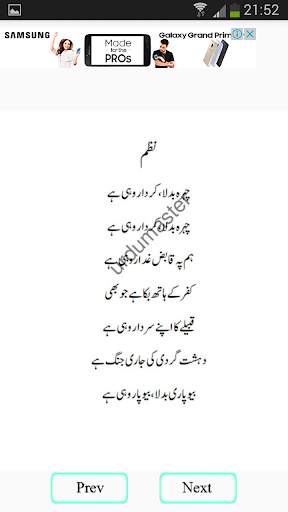 21:52
SAMSUNG
Made
for the
PROs
Galaxy Grand Prim
نظم
چہرہ بدلا، کردار وہی ہے
چہرہ بدلا، کردار وہی ہے
ہم پہ قابض غدار وہی ہے
کفر کے ہاتھ بکا ہے جو بھی
قبیلے کا اپنے سردار وہی ہے
دہشت گردی کی جاری جنگ ہے
بیوپاری بدلا، بیوپار وہی ہے
urdumaster
Prev
Next